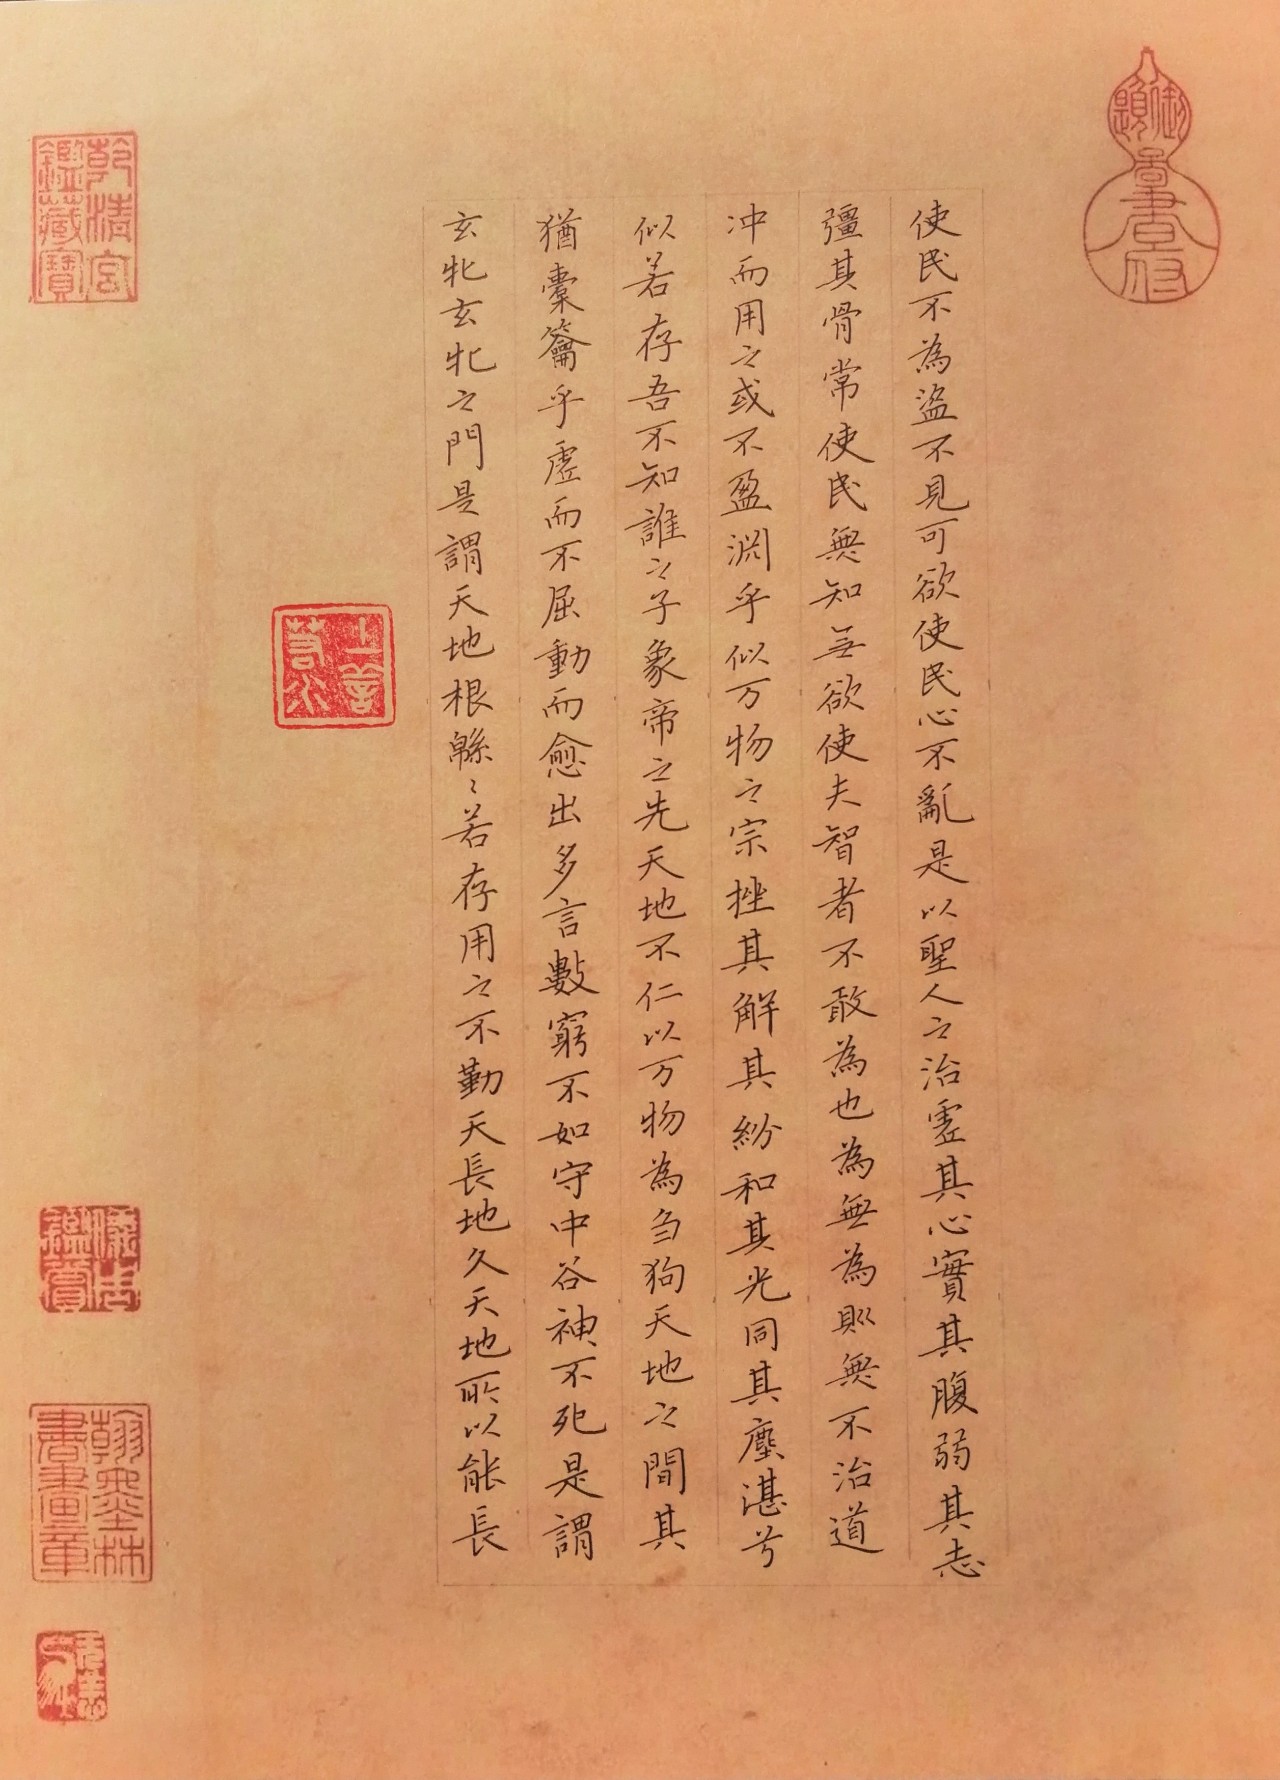 御題
圖書府
使民不為盜不見可欲使民心不亂是以聖人之治虛其心實其腹弱其志
彊其骨常使民無知無欲使夫智者不敢為也為無為則無不治道
冲而用之或不盈淵乎似万物之宗挫其解其紛和其光同其塵湛兮
似若存吾不知誰之子象帝之先天地不仁以万物為芻狗天地之間其
猶橐籥乎虛而不屈動而愈出多言數窮不如守中谷神不死是謂
玄牝玄牝之門是謂天地根緜〻若存用之不勤天長地久天地所以能長
上善若水
乾清宮鑑藏寶
儀周鑑賞
翰墨林書畫章